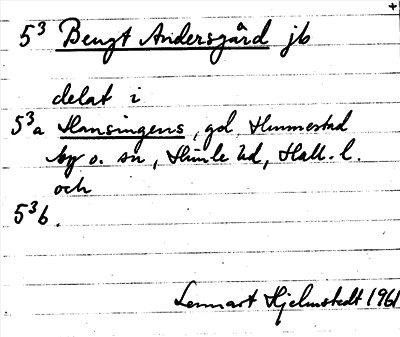 5³ Bengt Andersgård jb
delat i
5³a Hansingens, gd Hunnestad
by o. sn, Himle hd, Hall. l.
och
5³b.
Lennart Hjelmstedt 1961